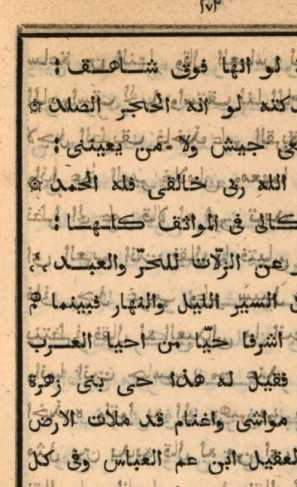 ١٧٣
لو انها فوق شـــاهـــق ؛
كنه لو انه الحجر الصلد ۞
جيش ولا من يعينني ؛
الله ربى خالقى فله الحمد ۞
كالى فى المواثق كلـهـــا ؛
عن الزلّات للحرّ والعبـــد
السير الليل والنهار فبينما هم
اشرفا حيّا من احيا العـــرب
فقيل له هذا حى بنى زهرة
مواشى واغنام قد ملات الارض
لعقيل ابن عم العباس وفى كل